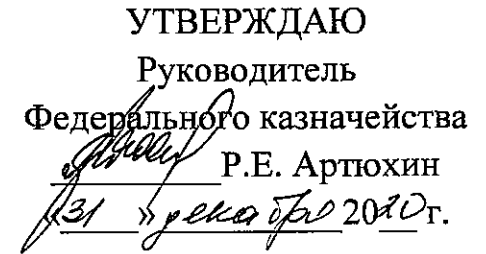 УТВЕРЖДАЮ
Руководитель
Федерального казначейства
Р.Е. Артюхин
«31» декабря 2020 г.